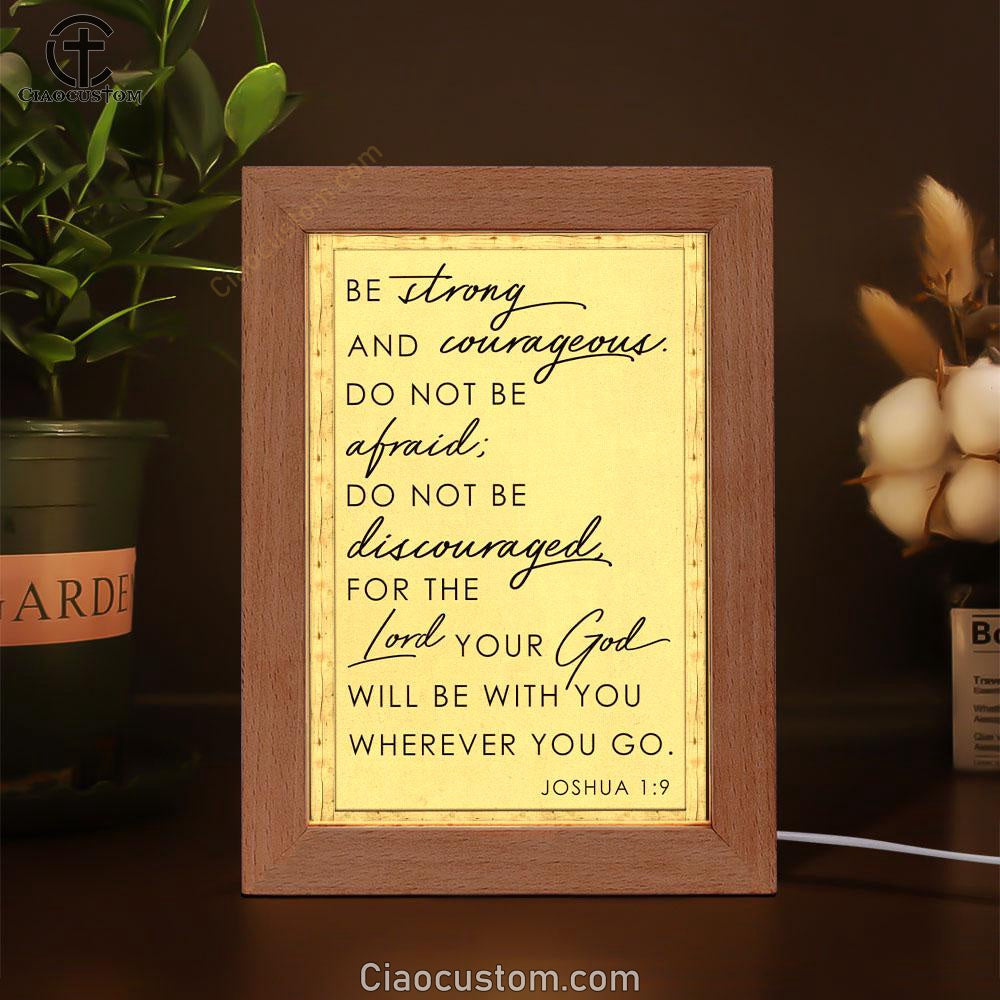 CIAOCUSTOM
Ciaocustom.com
BE strong
AND courageous.
DO NOT BE
afraid;
DO NOT BE
discouraged,
FOR THE
Lord YOUR God
WILL BE WITH YOU
WHEREVER YOU GO.
JOSHUA 1:9
GARDE
Ciaocustom.com